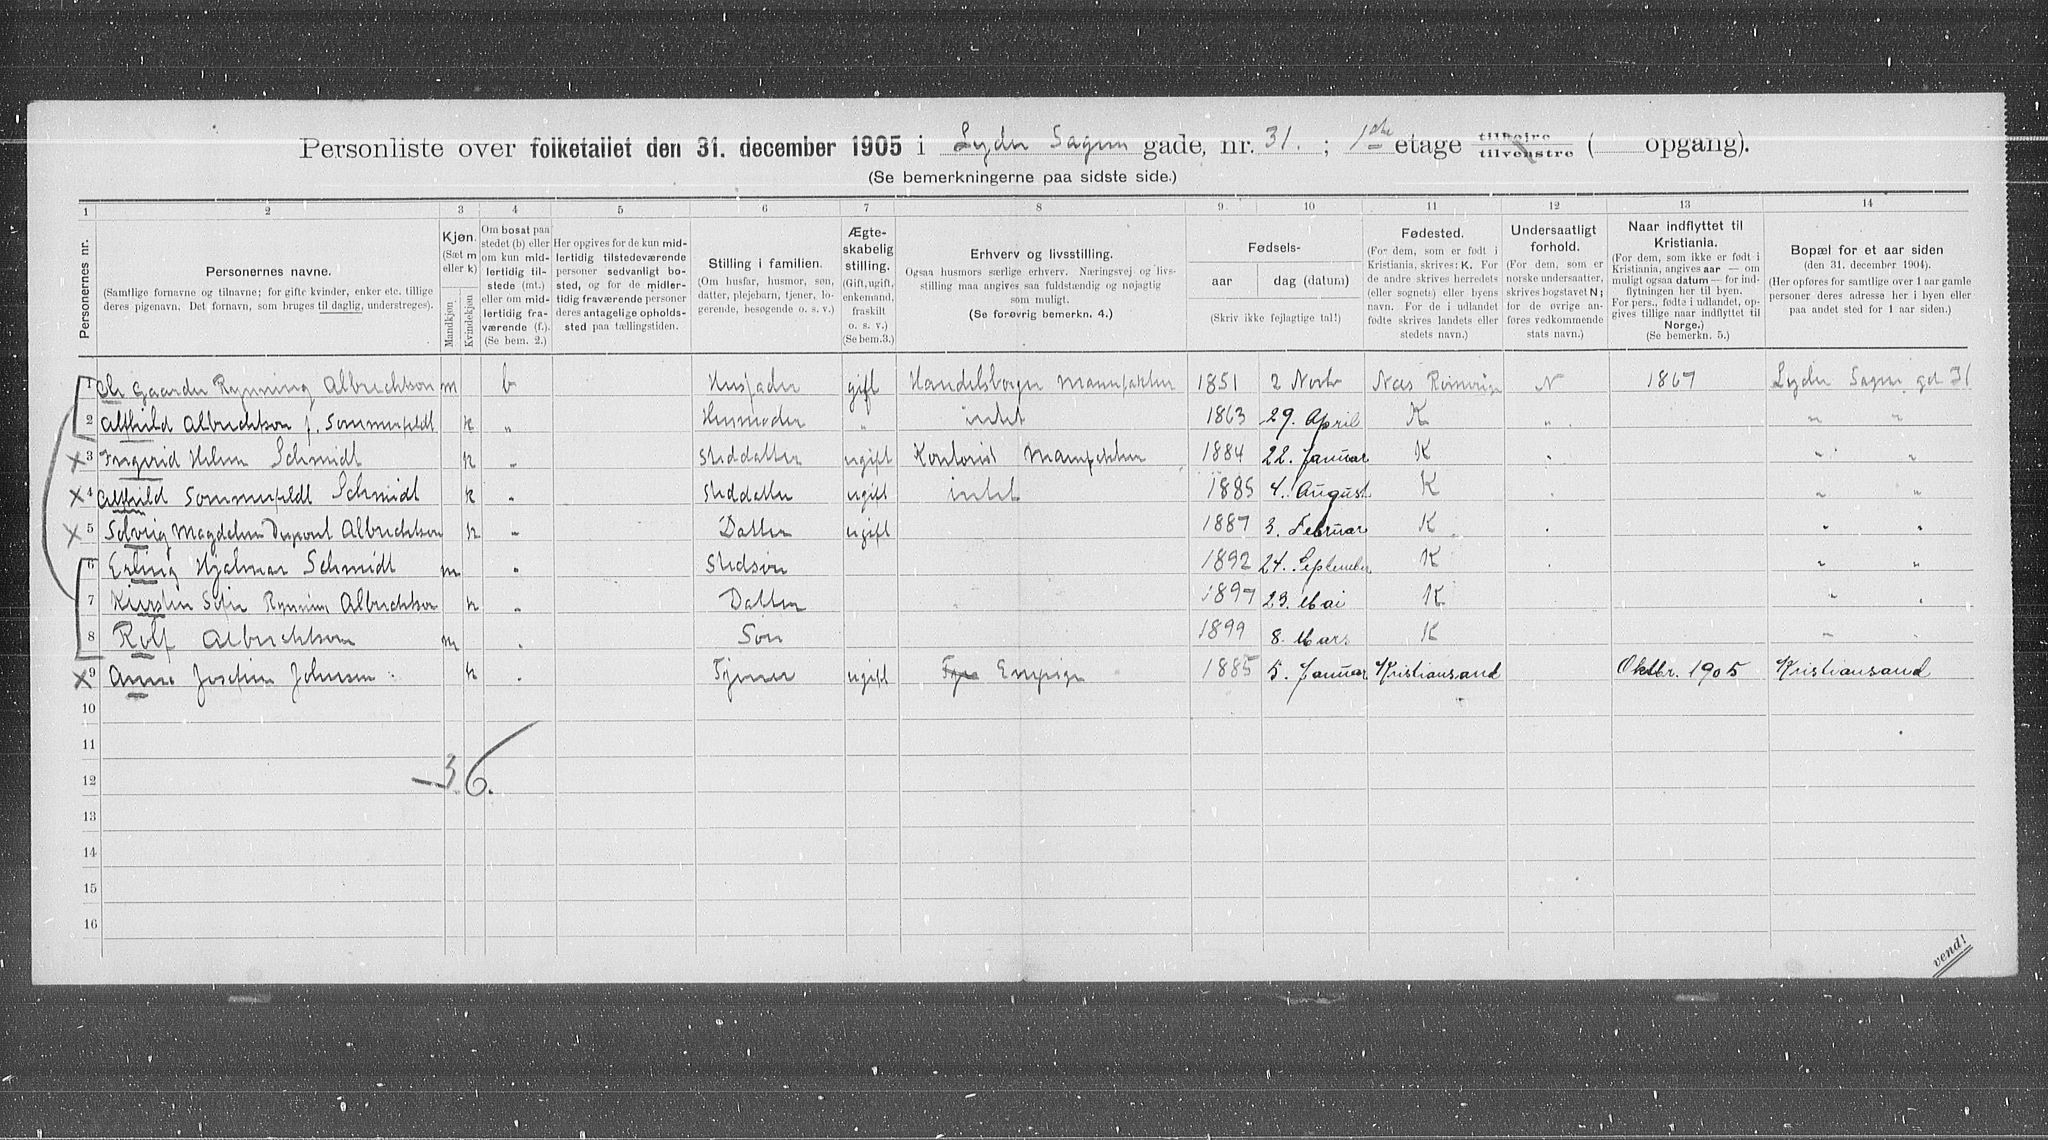 Personliste over folketallet den 31. december 1905 i Lyder Sagens gade, nr. 31. ; 1ste etage tilhøire tilvenstre ( opgang).
(Se bemerkningerne paa sidste side.)
1 2 3 4 5 6 7 8 9. 10 11 12 13 14
Personernes nr.
Personernes navne.
(Samtlige fornavne og tilnavne; for gifte kvinder, enker etc. tillige deres pigenavn. Det fornavn, som bruges til daglig, understreges).
Kjøn.
(Sæt m eller k)
Mandkjøn
Kvindekjøn
Om bosat paa stedet (b) eller om kun midlertidig tilstede (mt.) eller om midlertidig fraværende (f.). (Se bem. 2.)
Her opgives for de kun midlertidig tilstedeværende personer sedvanligt bosted, og for de midlertidig fraværende personer deres antagelige opholdssted paa tællingstiden.
Stilling i familien.
(Om husfar, husmor, søn, datter, plejebarn, tjener, logerende, besøgende o. s. v.)
Ægteskabelig stilling.
(Gift, ugift, enkemand, fraskilt o. s. v.) (Se bem.3.)
Erhverv og livsstilling.
Ogsaa husmors særlige erhverv. Næringsvej og livsstilling maa angives saa fuldstændig og nøjagtig som muligt.
(Se forøvrig bemerkn. 4.)
Fødsels-
aar
dag (datum)
(Skriv ikke fejlagtige tal!)
Fødested.
(For dem, som er født i Kristiania, skrives: K. For de andre skrives herredets (eller sognets) eller byens navn. For de i udlandet fødte skrives landets eller stedets navn.)
Undersaatligt forhold.
(For dem, som er norske undersaatter, skrives bogstavet N; for de øvrige anføres vedkommende stats navn.)
Naar indflyttet til Kristiania.
(For dem, som ikke er født i Kristiania, angives aar — om muligt ogsaa datum — for indflytningen her til byen. For pers., fødte i udlandet, opgives tillige naar indflyttet til Norge.)
(Se bemerkn. 5.)
Bopæl for et aar siden
(den 31. december 1904).
(Her opføres for samtlige over 1 aar gamle personer deres adresse her i byen eller paa andet sted for 1 aar siden.)
1 Chr Gaarder Rynning Albrechtson m b Husfader gift Handelsborger Manufaktur 1851 2 Novbr Næs Romerige N 1867 Lyder Sagens gd 31
2 Alfhild Albrechtson f. Sommerfeldt k " Husmoder " intet 1863 29. April K " " "
3 Ingerid Helene Schmidt k " Steddatter ugift Kontorist Manufaktur 1884 22. Januar K " "
4 Alfhild Sommerfeldt Schmidt k " Steddatter ugift intet 1885 4. August K " " "
5 Solveig Magdalene Albrechtson k " Datter ugift 1887 3. Februar K " " "
6 Erling Hjalmar Schmidt m " Stedsøn 1892 24. September K " " "
7 Kirsten Sofie Rynning Albrechtson k " Datter 1897 23. Mai K " "
8 Rolf Albrechtson m " Søn 1899 8. Mars K " "
9 Anna Josefine Johnsen k " Tjener ugift Enepige 1885 5. Januar Kristiansand Oktbr. 1905 Kristiansand
10
11
12 3 6.
13
14
15
16
vend!